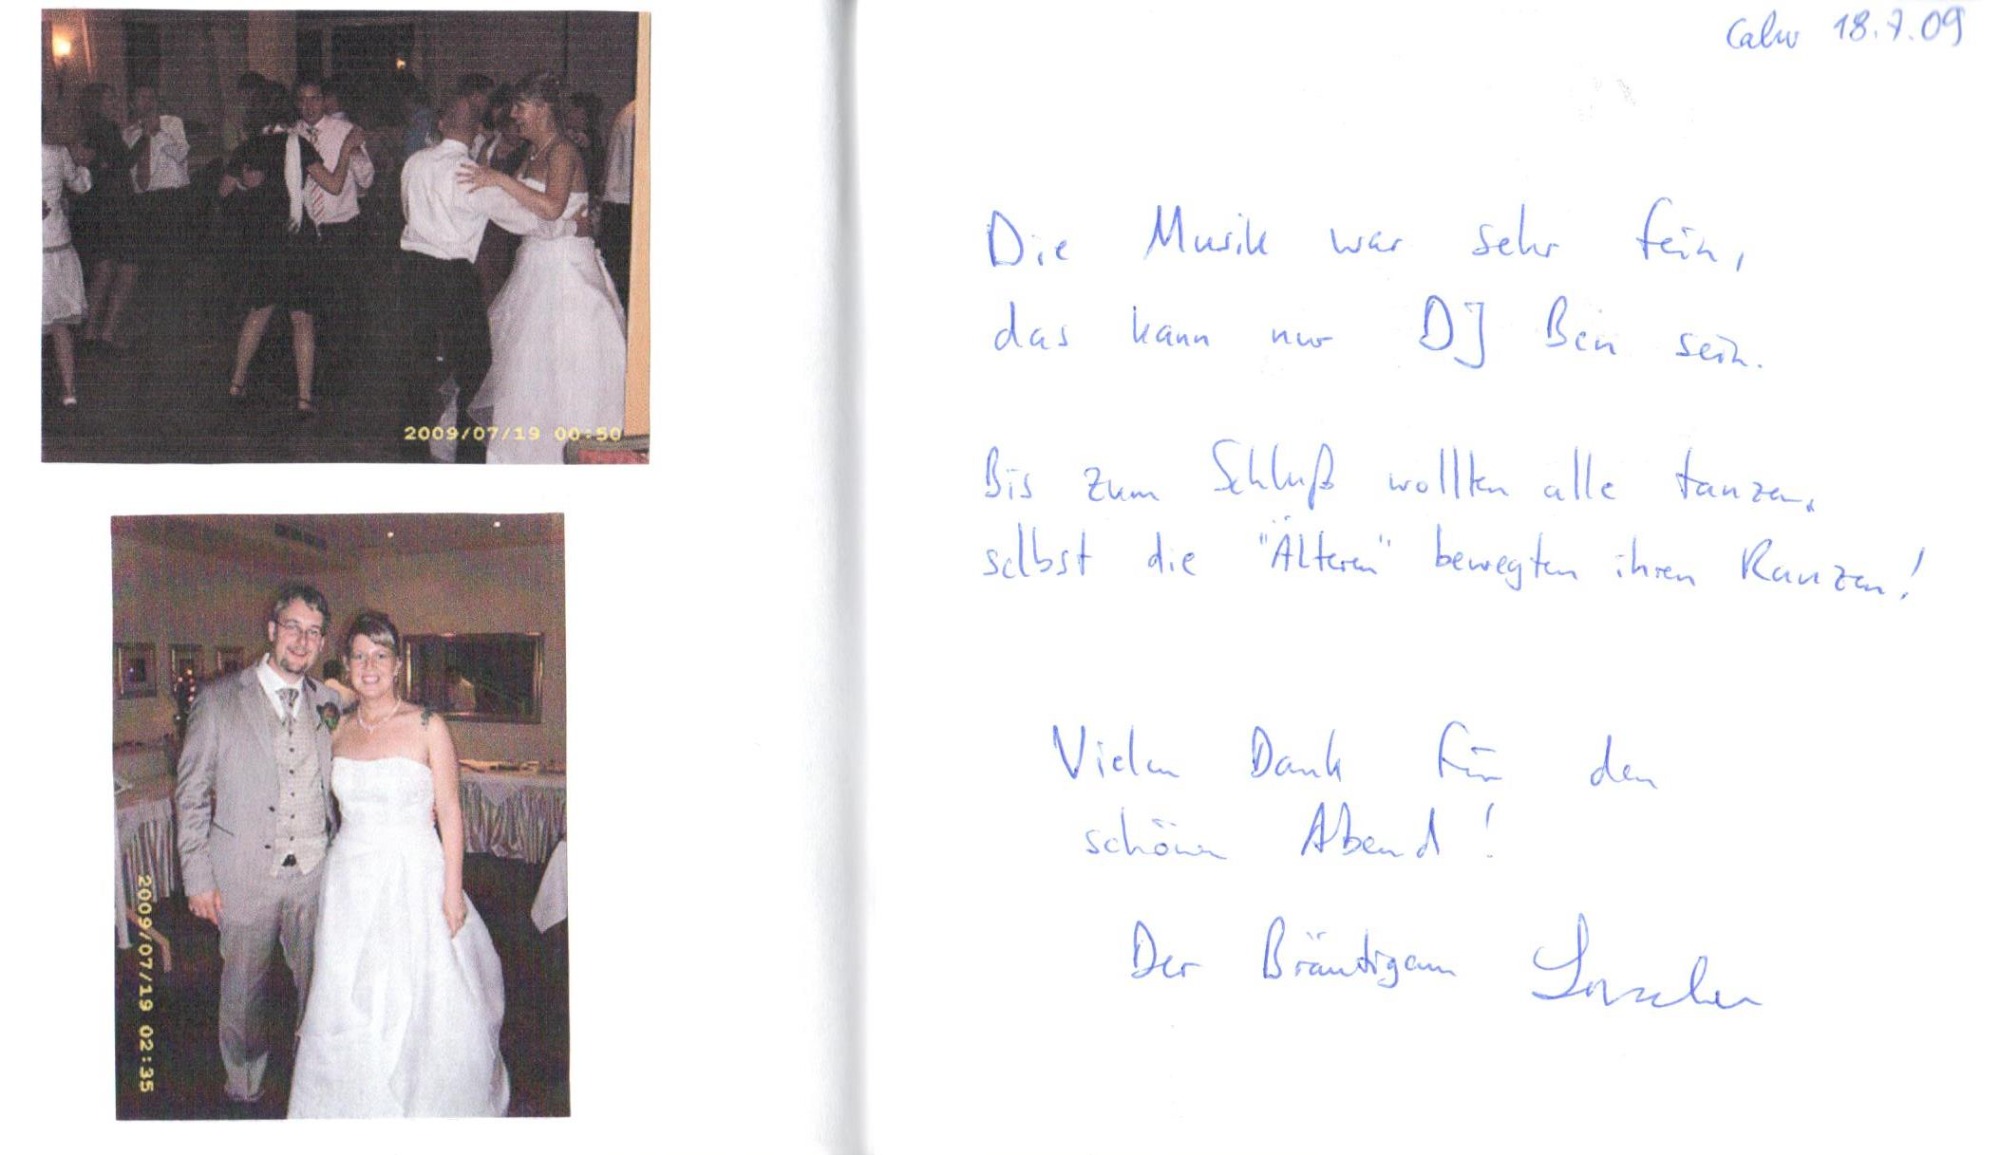 2009/07/19 00:50
2009/07/19 02:35
Calw 18.7.09
Die Musik war sehr fein,
das kann nur DJ Ben sein.
Bis zum Schluß wollten alle tanzen,
selbst die "Älteren" bewegten ihren Ranzen!
Vielen Dank für den
schönen Abend!
Der Bräutigam